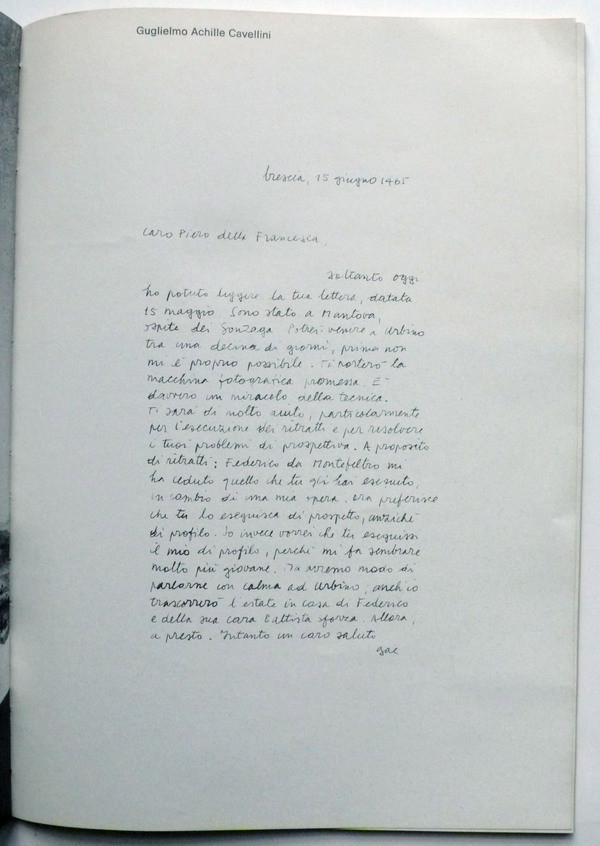 Guglielmo Achille Cavellini
brescia, 15 giugno 1465
Caro Piero della Francesca,
soltanto oggi
ho potuto leggere la tua lettera, datata
15 maggio. Sono stato a Mantova,
ospite dei Gonzaga. Potrei venire a Urbino
tra una decina di giorni, prima non
mi è proprio possibile. Ti porterò la
macchina fotografica promessa. È
davvero un miracolo della tecnica.
Ti sarà di molto aiuto, particolarmente
per l'esecuzione dei ritratti e per risolvere
i tuoi problemi di prospettiva. A proposito
di ritratti: Federico da Montefeltro mi
ha ceduto quello che tu gli hai eseguito,
in cambio di una mia opera. ora preferisce
che tu lo eseguisca di prospetto, anziché
di profilo. Io invece vorrei che tu eseguissi
il mio di profilo, perché mi fa sembrare
molto più giovane. Ma avremo modo di
parlarne con calma ad Urbino, anch'io
trascorrerò l'estate in casa di Federico
e della sua cara Battista Sforza. Allora,
a presto. Intanto un caro saluto
gac